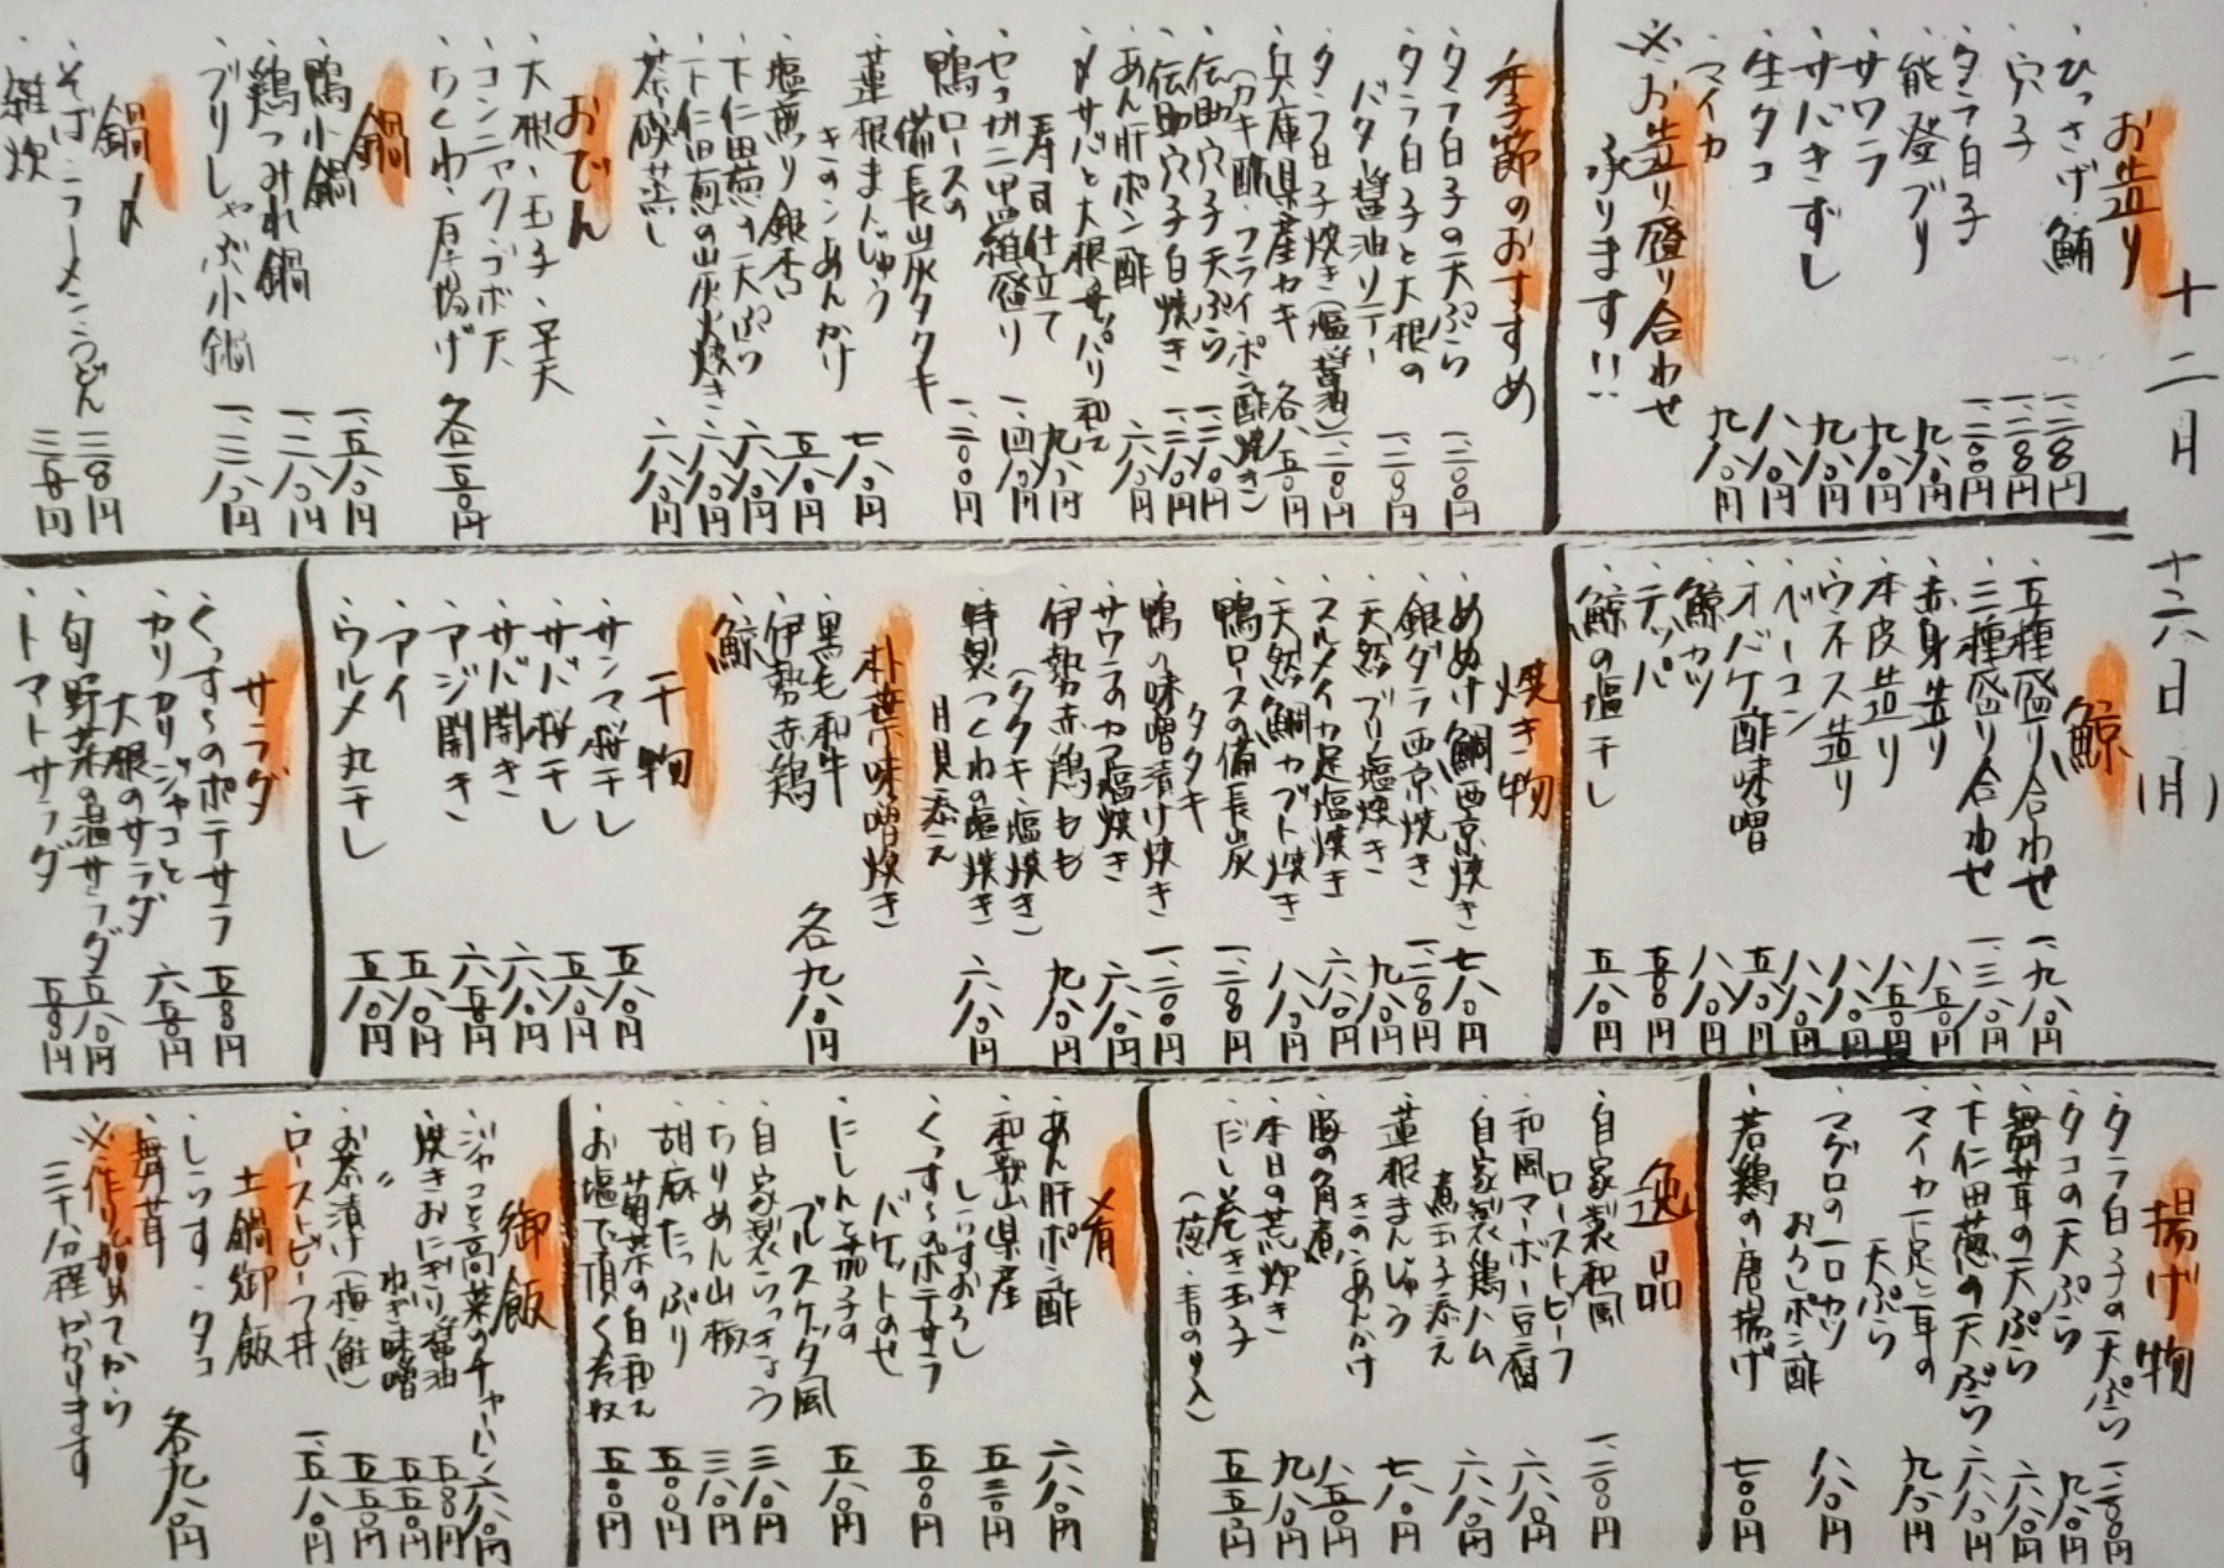 十二月 十六日(月)
お造り
・ひっさげ鮪 一、二八〇円
・穴子 一、二八〇円
・タラ白子 一、二〇〇円
・能登ブリ 九八〇円
・サワラ 九八〇円
・サバきずし 九八〇円
・生タコ 八八〇円
・マイカ 九八〇円
※お造り盛り合わせ
承ります!!
季節のおすすめ
・タラ白子の天ぷら 一、二〇〇円
・タラ白子と大根の
バター醤油ソテー 一、二〇〇円
・タラ白子焼き(塩・醤油) 一、二〇〇円
・兵庫県産カキ 各八五〇円
(カキ酢・フライ・ポン酢焼き)
・伝助穴子天ぷら 一、二八〇円
・伝助穴子白焼き 一、二八〇円
・あん肝ポン酢 六八〇円
・〆サバと大根のサッパリ和え
寿司仕立て 九八〇円
・セコガニ甲羅盛り 一、四八〇円
・鴨ロースの
備長炭タタキ 一、二〇〇円
・蓮根まんじゅう
きのこあんかけ 七八〇円
・塩煎り銀杏 五八〇円
・下仁田葱の天ぷら 六八〇円
・下仁田葱の炭火焼き 六八〇円
・茶碗蒸し 六八〇円
おでん
・大根・玉子・平天
・コンニャク・ゴボ天
・ちくわ・厚揚げ 各二五〇円
鍋
・鴨小鍋 一、五八〇円
・鶏つみれ鍋 一、二八〇円
・ブリしゃぶ小鍋 一、三八〇円
鍋〆
・そば・ラーメン・うどん 三八〇円
・雑炊 三五〇円
鯨
・五種盛り合わせ 一、九八〇円
・三種盛り合わせ 一、三八〇円
・赤身造り 八五〇円
・本皮造り 八五〇円
・ウネス造り 八八〇円
・ベーコン 八八〇円
・オバケ酢味噌 五八〇円
・鯨カツ 八八〇円
・テッパ 五八〇円
・鯨の塩干し 五八〇円
焼き物
・めぬけ鯛西京焼き 七八〇円
・銀ダラ西京焼き 一、二八〇円
・天然ブリ塩焼き 九八〇円
・スルメイカ足塩焼き 六八〇円
・天然鯛カブト焼き 八八〇円
・鴨ロースの備長炭
タタキ 一、二八〇円
・鴨の味噌漬け焼き 一、二〇〇円
・サワラのカマ塩焼き 六八〇円
・伊勢赤鶏もも
(タタキ・塩焼き) 九八〇円
・特製つくねの塩焼き
月見添え 六八〇円
朴葉味噌焼き
・黒毛和牛
・伊勢赤鶏
・鯨 各九八〇円
干物
・サンマ桜干し 五八〇円
・サバ桜干し 五八〇円
・サバ開き 六八〇円
・アジ開き 六五〇円
・アイ 五八〇円
・ウルメ丸干し 五八〇円
サラダ
・くっす〜のポテサラ 五〇〇円
・カリカリジャコと
大根のサラダ 六五〇円
・旬野菜の温サラダ 五八〇円
・トマトサラダ 五〇〇円
揚げ物
・タラ白子の天ぷら 一、二〇〇円
・タコの天ぷら 九八〇円
・舞茸の天ぷら 六八〇円
・下仁田葱の天ぷら 六八〇円
・マイカ下足と耳の
天ぷら 九八〇円
・マグロの一口カツ
おろしポン酢 八八〇円
・若鶏の唐揚げ 七〇〇円
逸品
・自家製和風
ローストビーフ 一、二〇〇円
・和風マーボー豆腐 六八〇円
・自家製鶏ハム
煮玉子添え 六八〇円
・蓮根まんじゅう
きのこあんかけ 七八〇円
・豚の角煮 八五〇円
・本日の荒炊き 九八〇円
・だし巻き玉子
(葱・青のり入) 五五〇円
肴
・あん肝ポン酢 六八〇円
・和歌山県産
しらすおろし 五三〇円
・くっす〜のポテサラ
バケットのせ 五〇〇円
・にしんと茄子の
ブルスケッタ風 五八〇円
・自家製らっきょう 三八〇円
・ちりめん山椒 三八〇円
・胡麻たっぷり
菊菜の白和え 五〇〇円
・お塩で頂く若取 五〇〇円
御飯
・ジャコと高菜のチャーハン 六八〇円
・焼きおにぎり醤油 五〇〇円
・〃 ねぎ味噌 五五〇円
・お茶漬け(梅・鮭) 五五〇円
・ローストビーフ丼 一、五八〇円
土鍋御飯
・しらす・タコ
・舞茸 各九八〇円
※作り始めてから
三十分程かかります